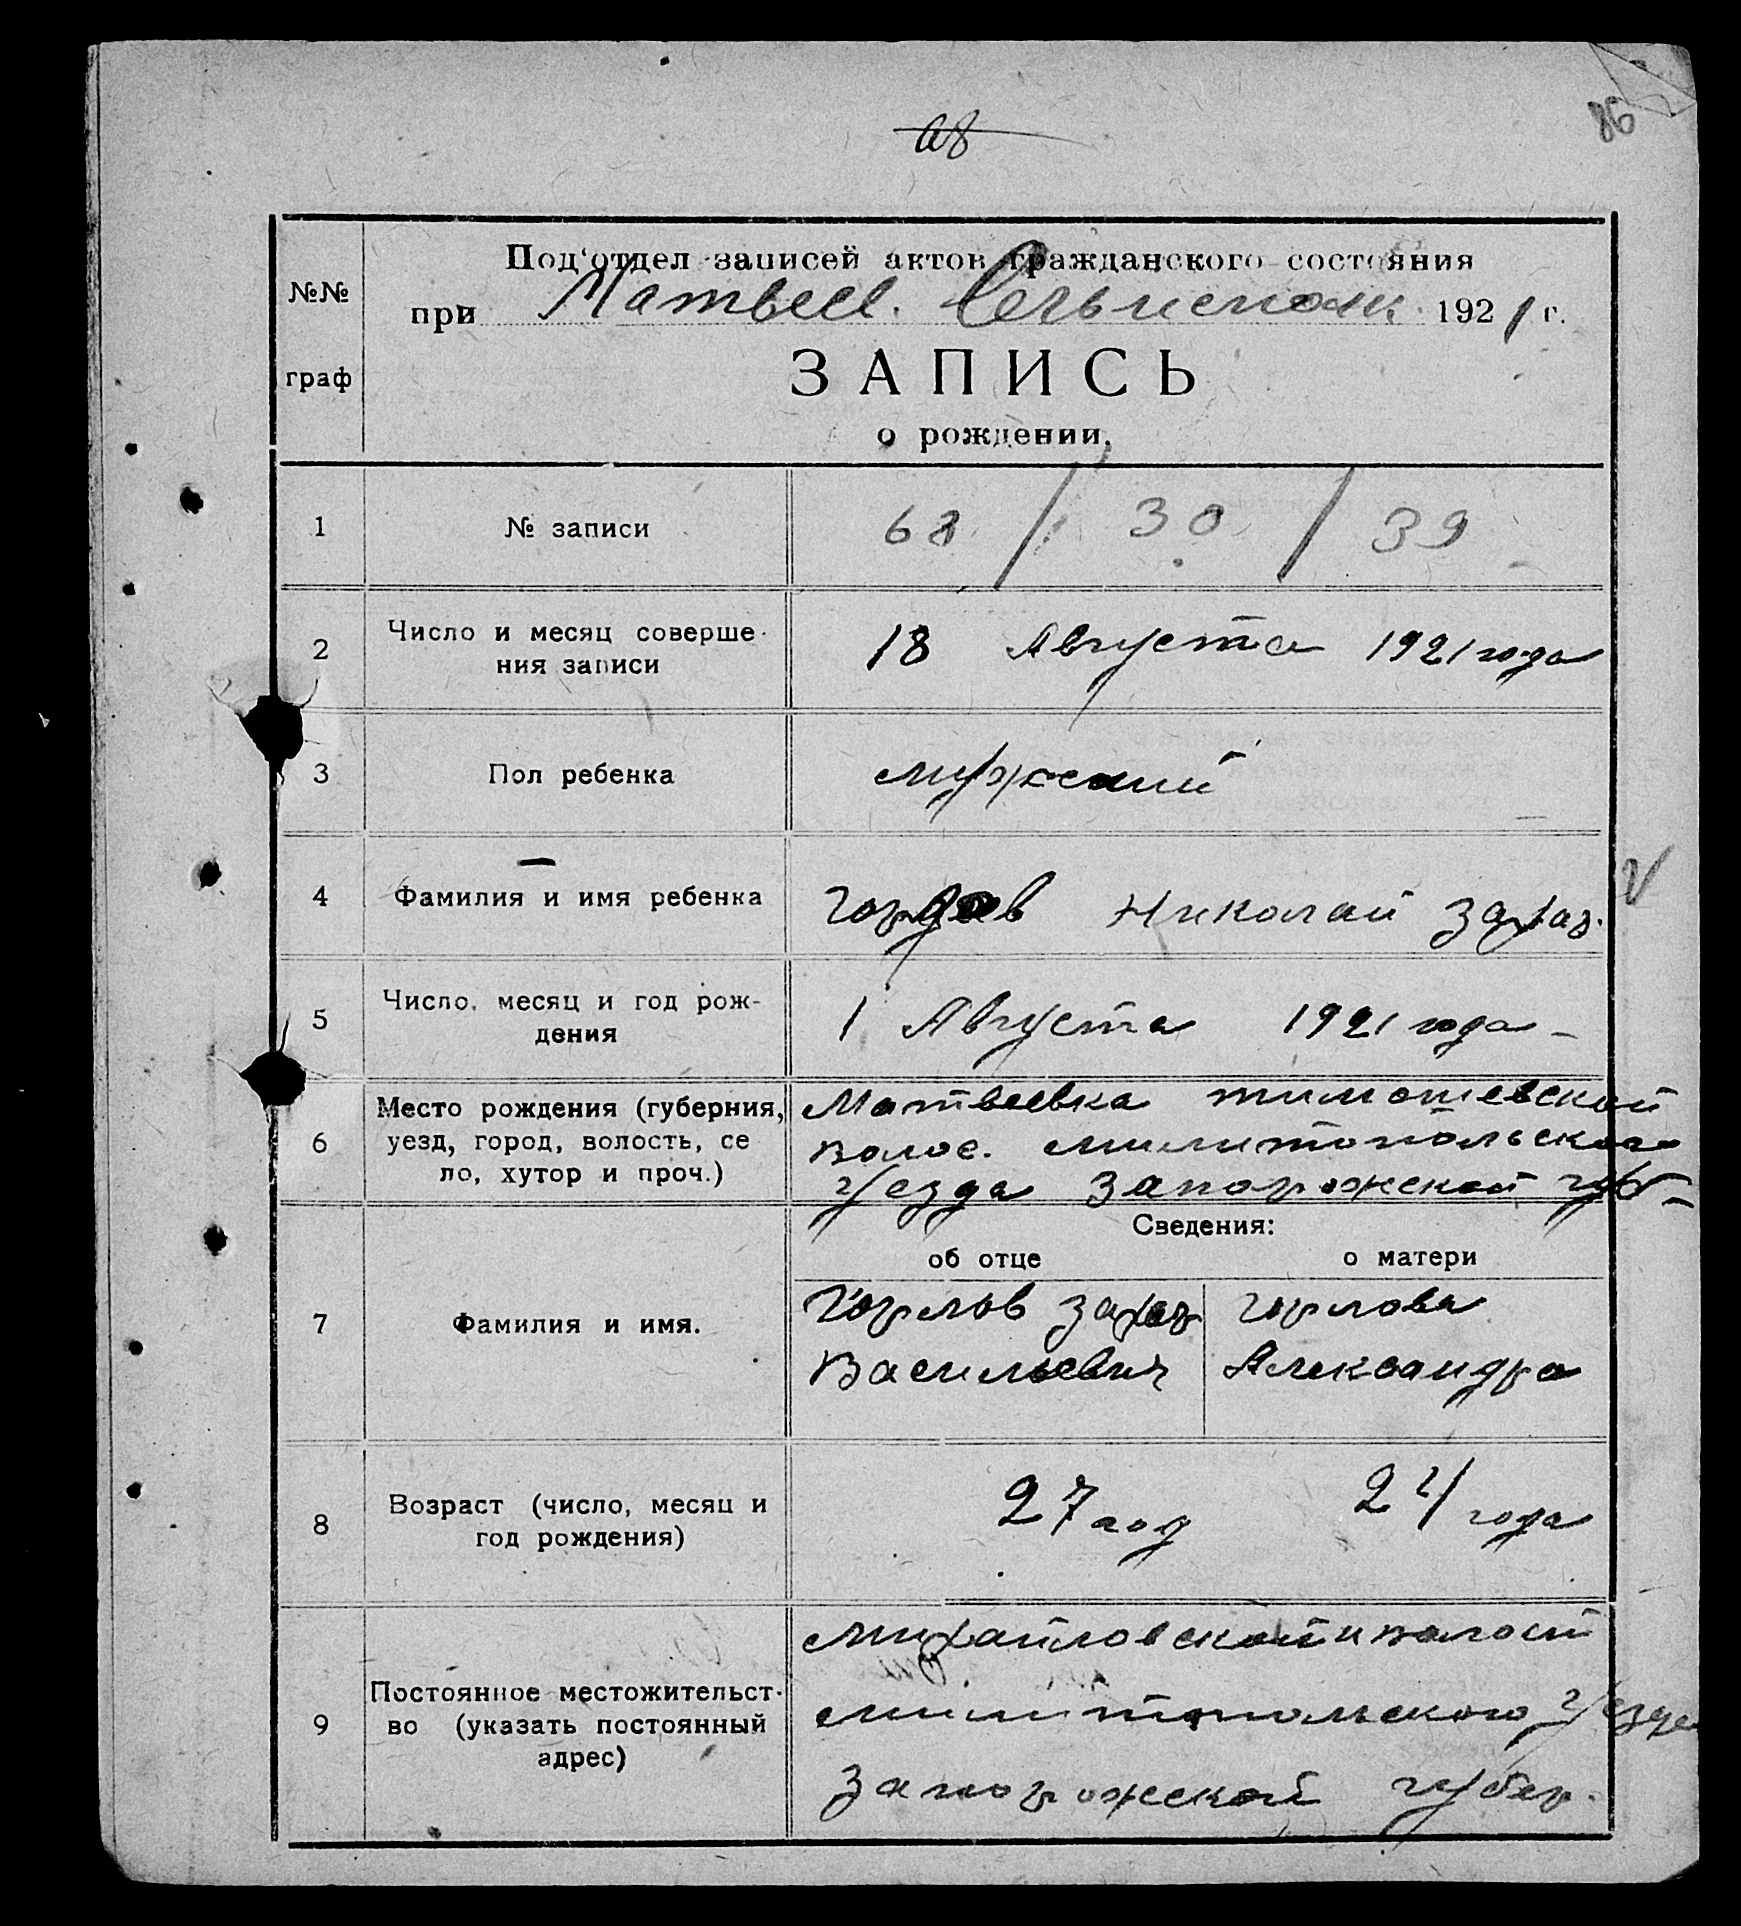 68
86
Под'отдел записей актов гражданского состояния
№№
при Матвеев. Сельисполк. 1921 г.
граф
ЗАПИСЬ
о рождении,
1 № записи 68 / 30 / 39
2 Число и месяц соверше- 18 Августа 1921 года
ния записи
3 Пол ребенка мужеский
4 Фамилия и имя ребенка Николай Захар.
5 Число, месяц и год рож- 1 Августа 1921 года
дения
Место рождения (губерния, Матвеевка тимошевской
6 уезд, город, волость, се волос. милитопольского
ло, хутор и проч.) уезда Запорожской губ-
Сведения:
об отце о матери
Горлов Захар Горлова
7 Фамилия и имя.
Васильевич Александра
8 Возраст (число, месяц и 27 год 24 года
год рождения)
михайловской волост
9 Постоянное местожительст- милитопольского уезда
во (указать постоянный
адрес) Запорожской губер.